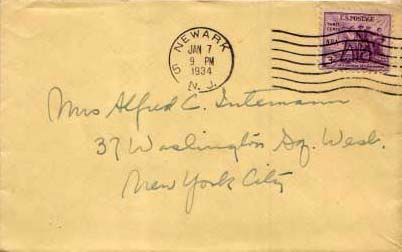 NEWARK
5
JAN 7
9 PM
1934
N. J.
U.S. POSTAGE
THREE CENTS
Mrs Alfred C. Intemann
37 Washington Sq. West.
New York City